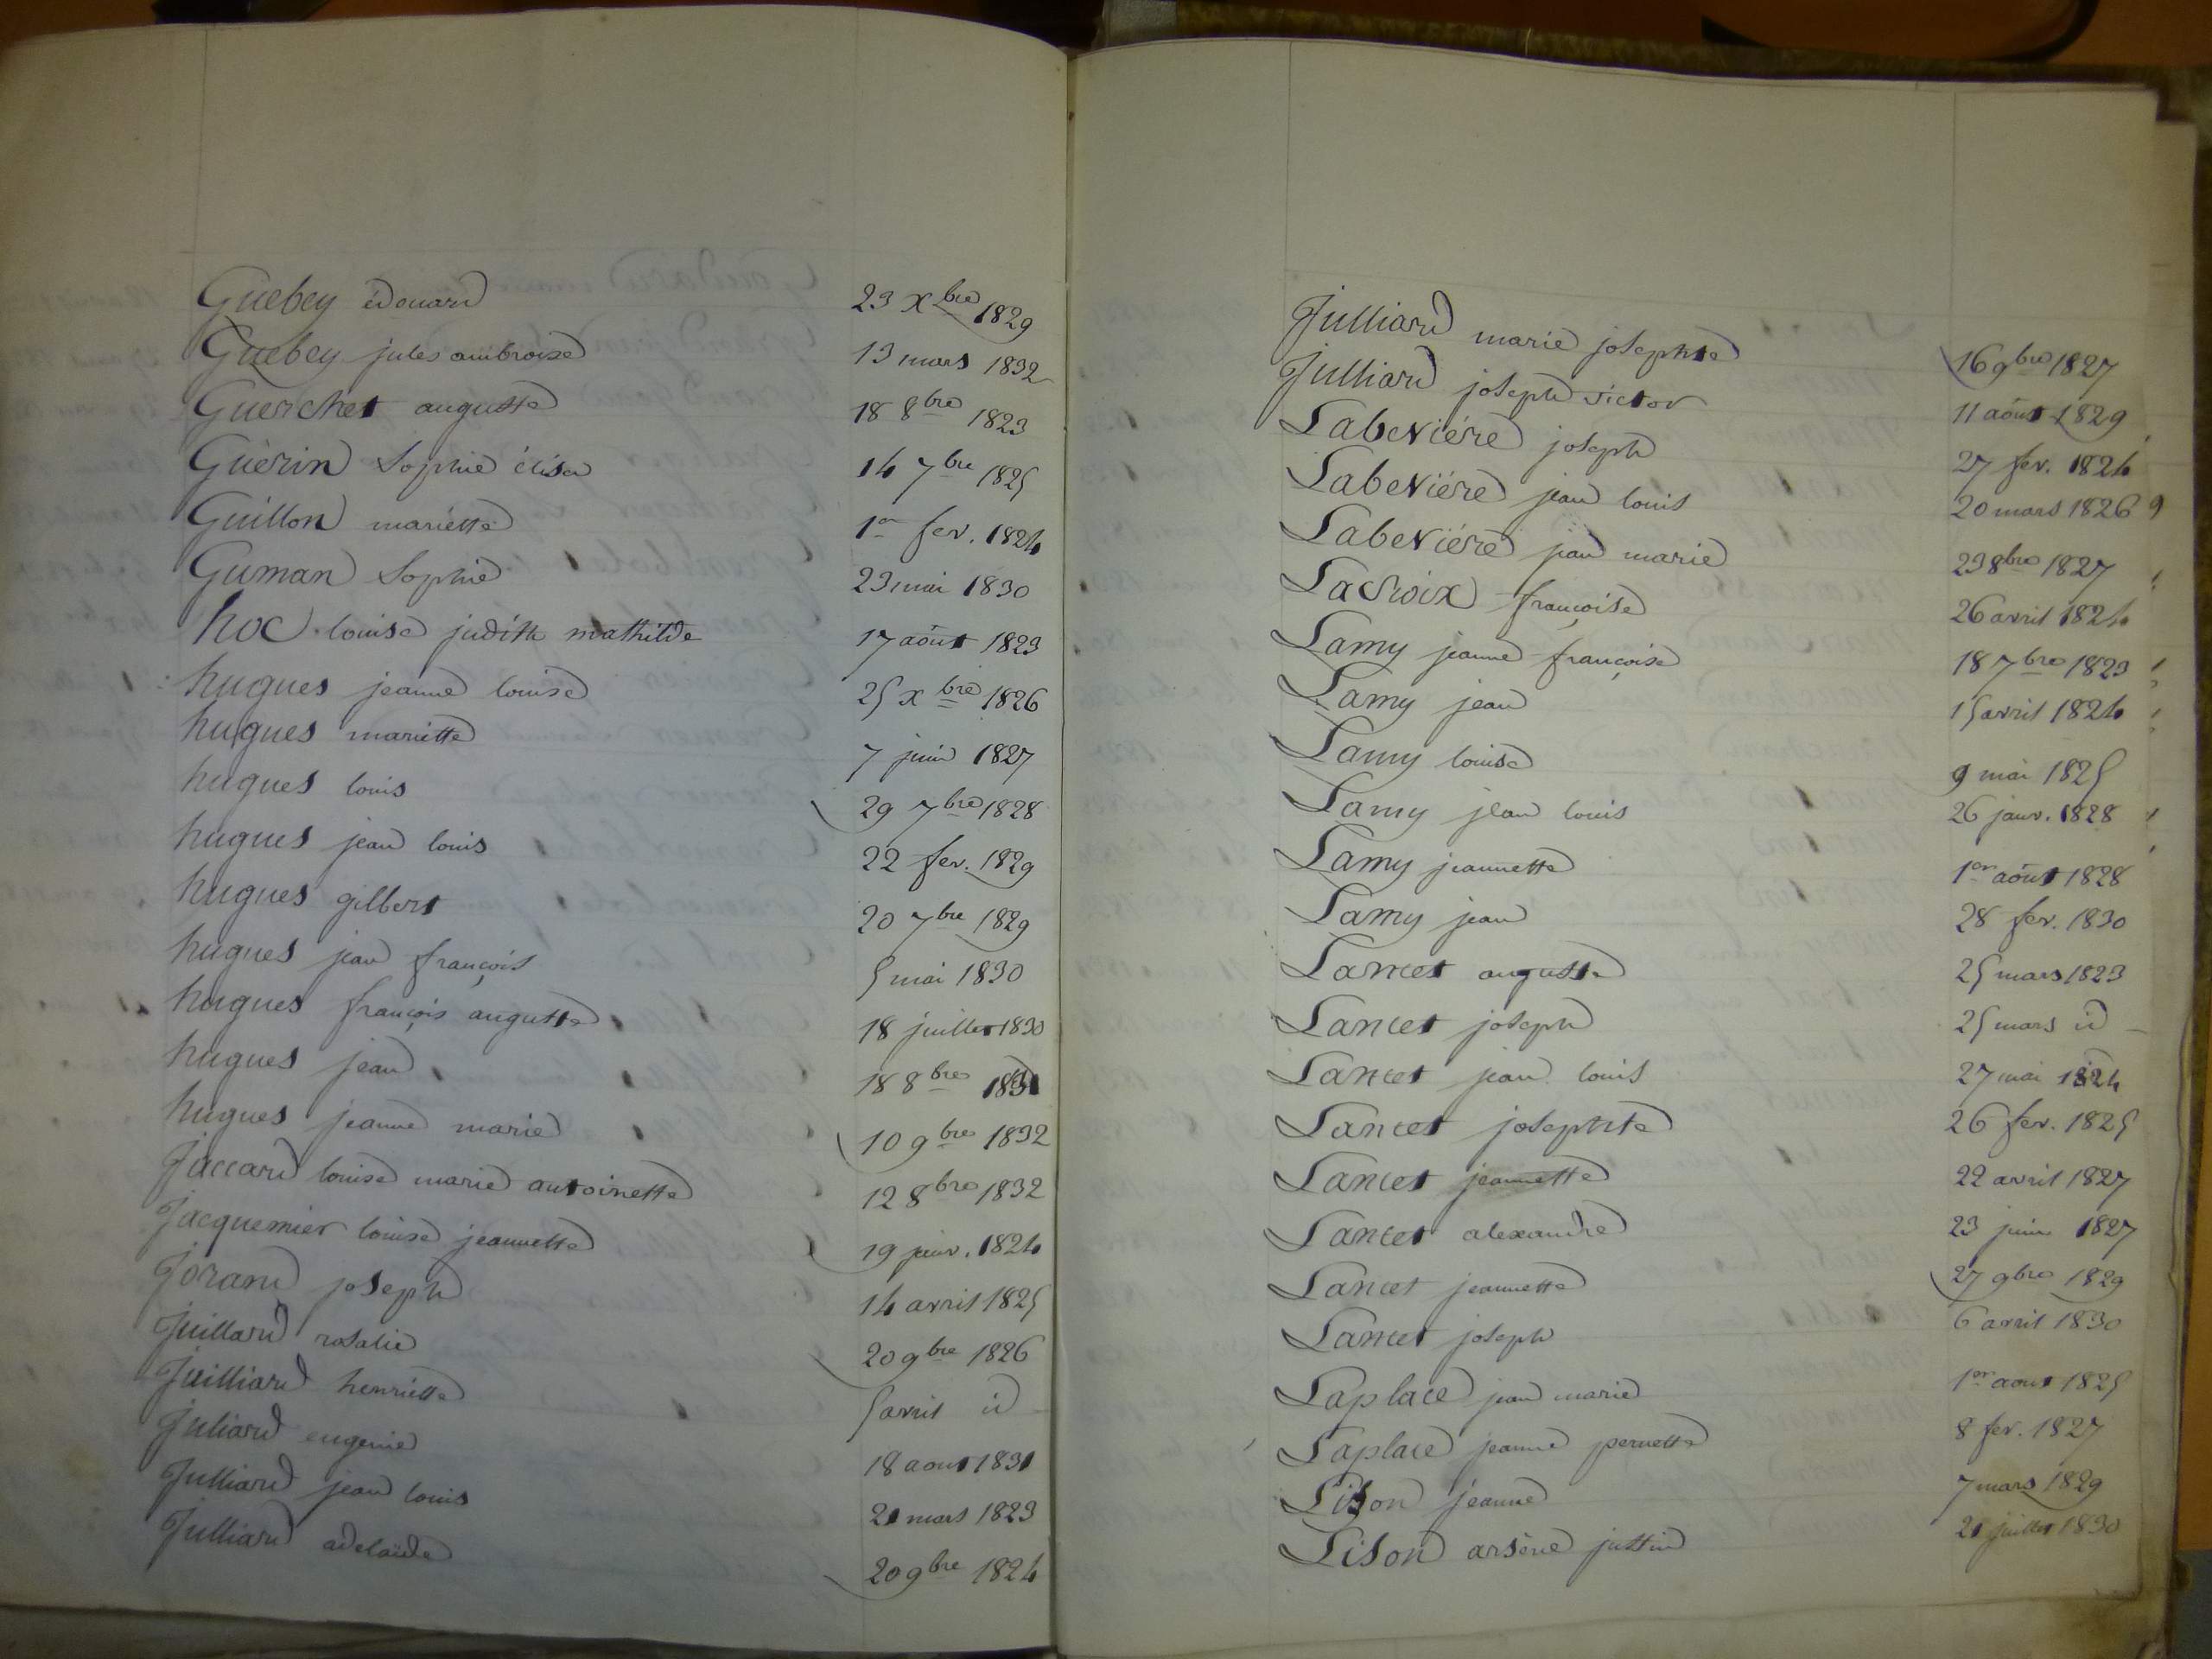 Guebey édouard 23 Xbre 1829
Guebey jules ambroise 13 mars 1832
Guerchet auguste 18 8bre 1823
Guérin Sophie élisa 14 7bre 1825
Guillon mariette 1er fev. 1824
Guman Sophie 23 mai 1830
hoc louise judith mathilde 17 août 1823
hugues jeanne louise 25 Xbre 1826
hugues mariette 7 juin 1827
hugues louis 29 7bre 1828
hugues jean louis 22 fev. 1829
hugues gilbert 20 7bre 1829
hugues jean françois 5 mai 1830
hugues françois auguste 18 juillet 1830
hugues jean 18 8bre 1831
hugues jeanne marie 10 9bre 1832
Jaccard louise marie antoinette 12 8bre 1832
Jacquemier louise jeannette 19 janv. 1824
Jorand joseph 14 avril 1825
Juillard rosalie 20 9bre 1826
Juilliard henriette 5 avril id
Juliard eugenie 18 aout 1831
Julliard jean louis 21 mars 1823
Julliard adelaïde 20 9bre 1824
Julliard marie josephte 16 9bre 1827
Julliard joseph victor 11 août 1829
Labeviére joseph 27 fev. 1824
Labeviére jean louis 20 mars 1826 9
Labeviére jean marie 23 8bre 1827
Lacroix françoise 26 avril 1824
Lamy jeanne françoise 18 7bre 1823
Lamy jean 15 avril 1824
Lamy louise 9 mai 1825
Lamy jean louis 26 janv. 1828
Lamy jeannette 1er août 1828
Lamy jean 28 fev. 1830
Lancet auguste 25 mars 1823
Lancet joseph 25 mars id
Lancet jean louis 27 mai 1824
Lancet josephte 26 fev. 1825
Lancet jeannette 22 avril 1827
Lancet alexandre 23 juin 1827
Lancet jeannette 27 9bre 1829
Lancet joseph 6 avril 1830
Laplace jean marie 1er aout 1825
Laplace jeanne pernette 8 fev. 1827
Lison jeanne 7 mars 1829
Lison arsène justin 21 juillet 1830